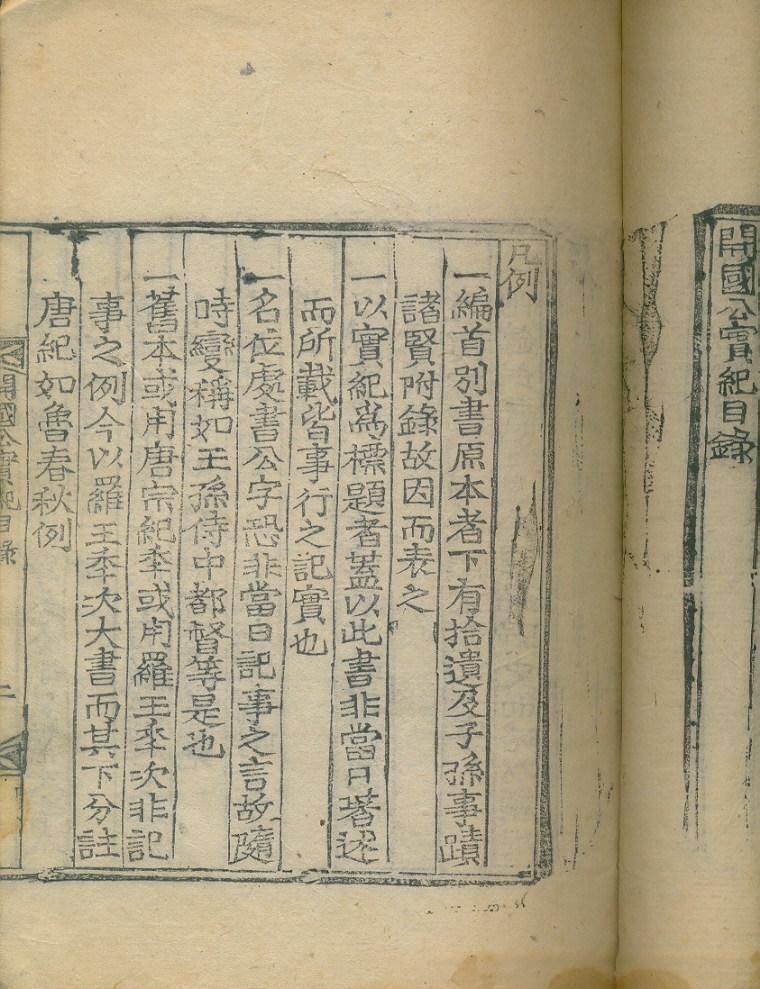 開國公實紀目錄
凡例
一編首別書原本者下有拾遺及子孫事蹟
諸賢附錄故因而表之
一以實紀爲標題者蓋以此書非當日著述
而所載皆事行之記實也
一名位處書公字恐非當日記事之言故隨
時變稱如王孫侍中都督等是也
一舊本或用唐宗紀年或用羅王年次非記
事之例今以羅王年次大書而其下分註
唐紀如魯春秋例
開國公實紀目錄
二